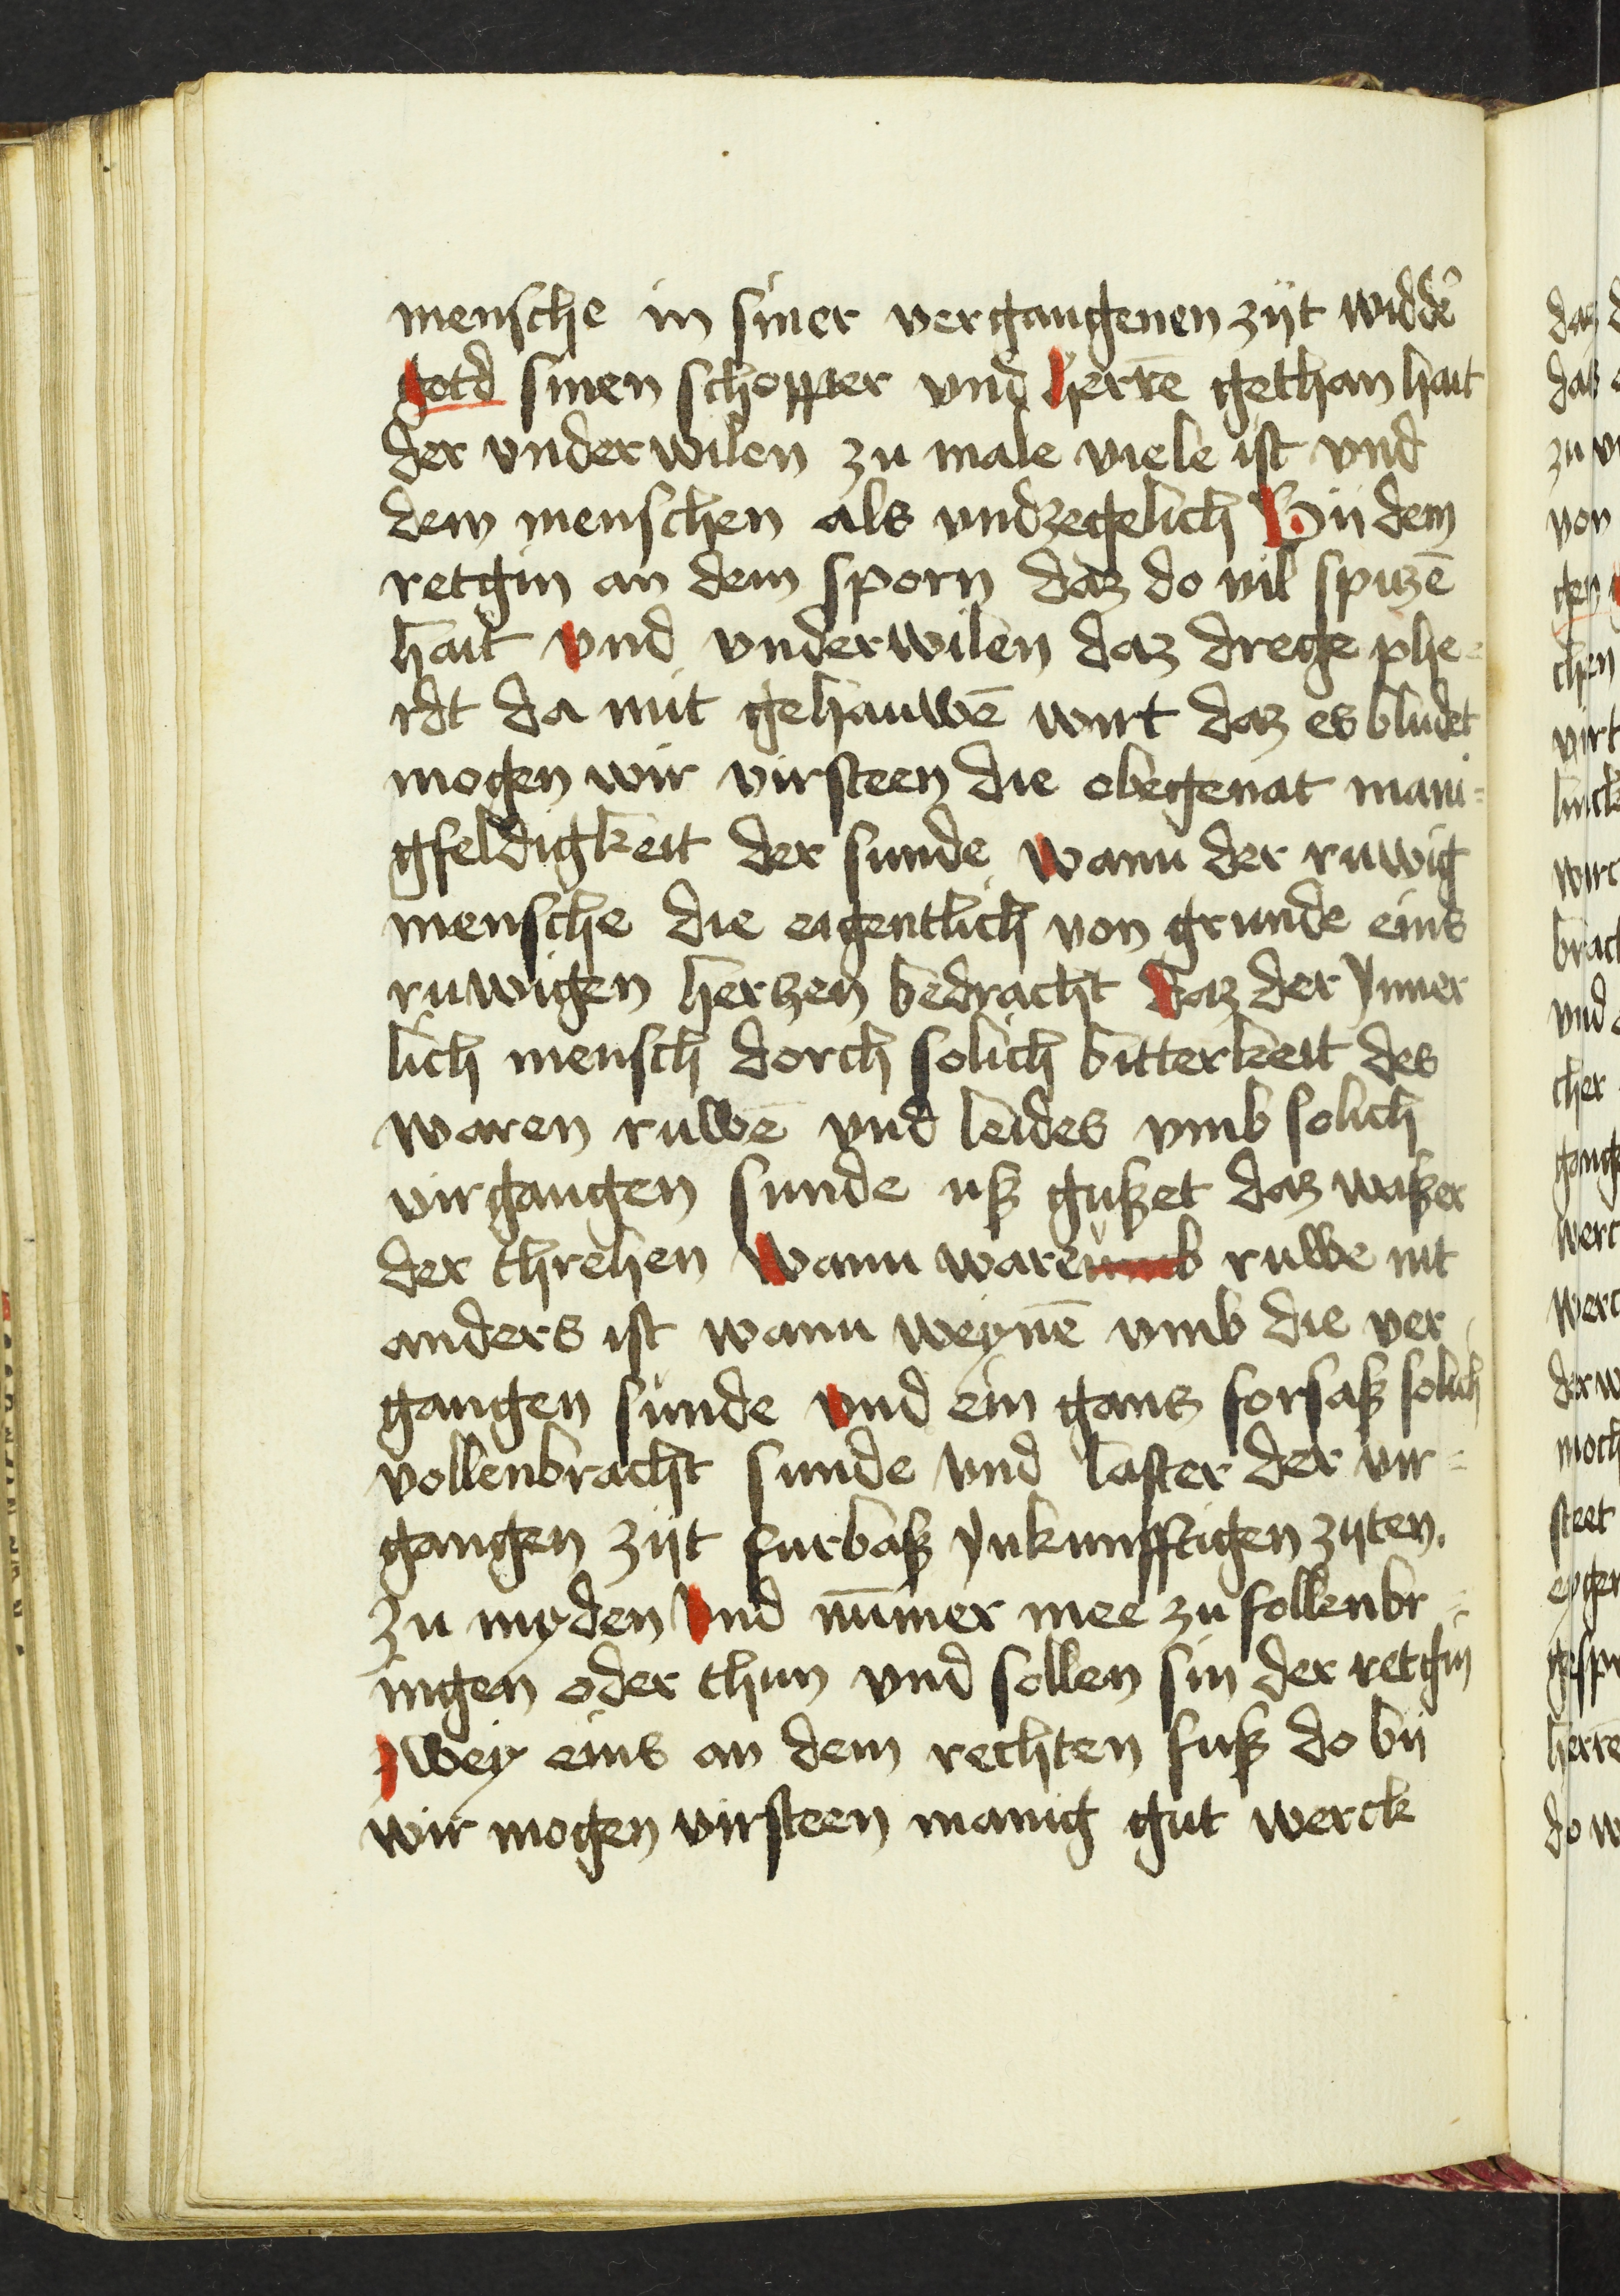 mensche in siner vergangenen zijt widdẽ
gotd sinen schopper vnd herrẽ gethan hait
der vnderwilen zu male viele ist vnd
dem menschen als vndzegelich Bii dem
retgin an dem sporn daz do vil spitzẽ
hait vnd vnderwilen daz drege phe=
rdt da mit gehauwẽ wirt daz es bludet
mogen wir virsteen die obegenāt mani=
gfeldigkeit der sunde wann der ruwig
mensche die eigentlich von grunde eins
ruwigen hertzen bedracht daz der ynner
lich mensch dorch solich bitterkeit des
waren ruwẽ vnd leides vmb solich
virgangen sunde uß gußet daz waßer
der threhen wann waren ruwe nit
anders ist wann weynẽ vmb die ver
gangen sunde vnd ein gans forsaß solich
vollenbracht sunde vnd laster der vir=
gangen zijt furbaß ynkunfftigen zijten.
zu myden vnd nũmer mee zu follenbr=
ingen oder thun vnd sollen sin der retgin
zwey eins an dem rechten fuß do bij
wir mogen virsteen manig gut werck